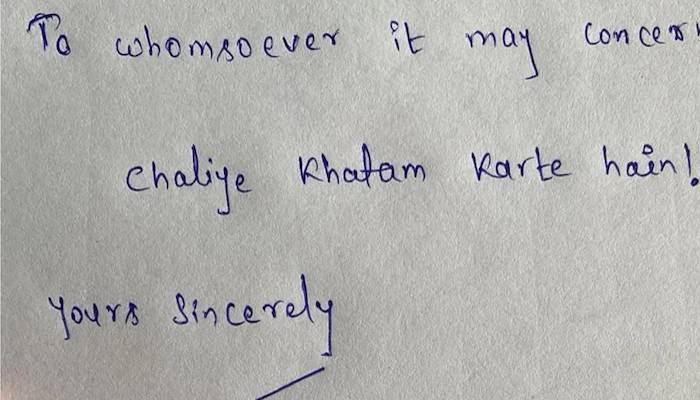 To whomsoever it may concern
Chaliye Khatam Karte hain!
Yours Sincerely